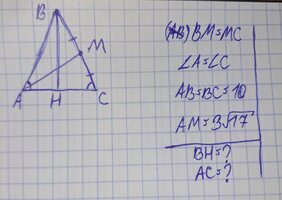 B
M
A
H
C
(AB) BM=MC
∠A=∠C
AB=BC=10
AM=3√17
BH=?
AC=?